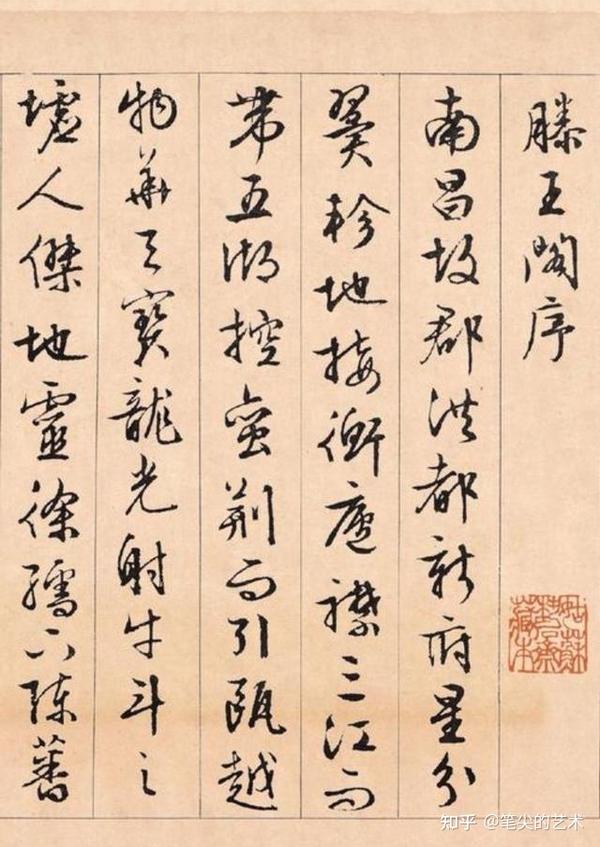 滕王閣序
南昌故郡洪都新府星分
翼軫地接衡廬襟三江而
帶五湖控蠻荆而引甌越
物華天寶龍光射牛斗之
墟人傑地靈徐孺下陳蕃
知乎 @笔尖的艺术